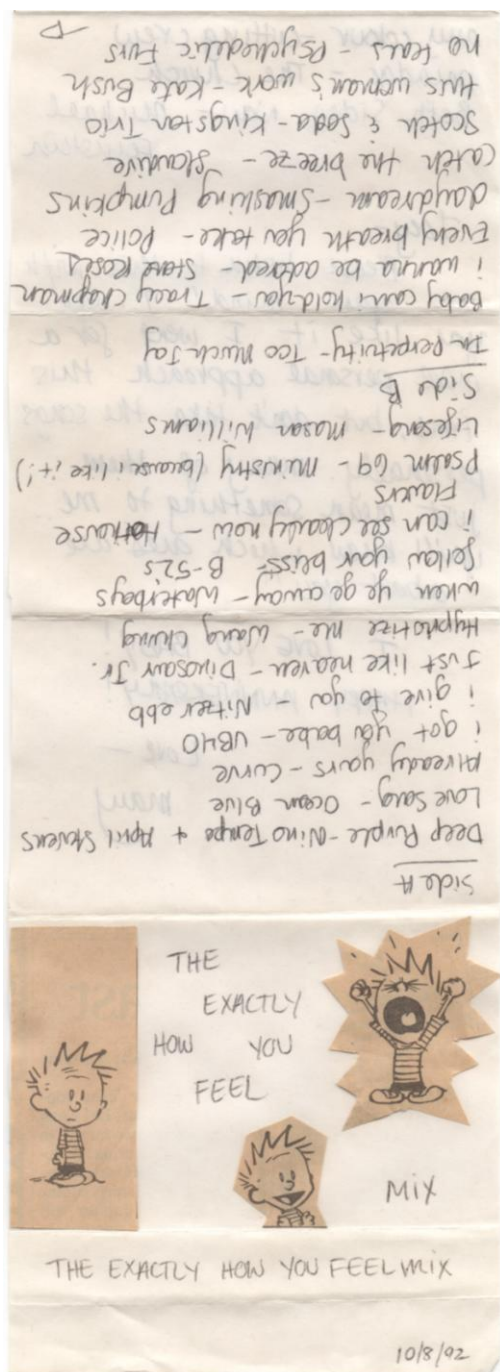 THE
EXACTLY
HOW YOU
FEEL
MIX
THE EXACTLY HOW YOU FEEL MIX
10/8/92
Side A
Deep Purple - Nino Tempo + April Stevens
Love Song - Ocean Blue
Already yours - Curve
i got you babe - UB40
i give to you - Nitzer ebb
Just like heaven - Dinosaur Jr.
Hypnotize me - Wang Chung
when ye go away - Waterboys
follow your bliss - B-52s
i can see clearly now - Hothouse
Flowers
Psalm 69 - ministry (because i like it!)
Lifesong - Mason Williams
Side B
In Perpetuity - Too Much Joy
Baby can i hold you - Tracy Chapman
i wanna be adored - Stone Roses
Every breath you take - Police
daydream - Smashing Pumpkins
catch the breeze - Slowdive
Scotch & Soda - Kingston Trio
this woman's work - Kate Bush
no tears - Psychedelic Furs